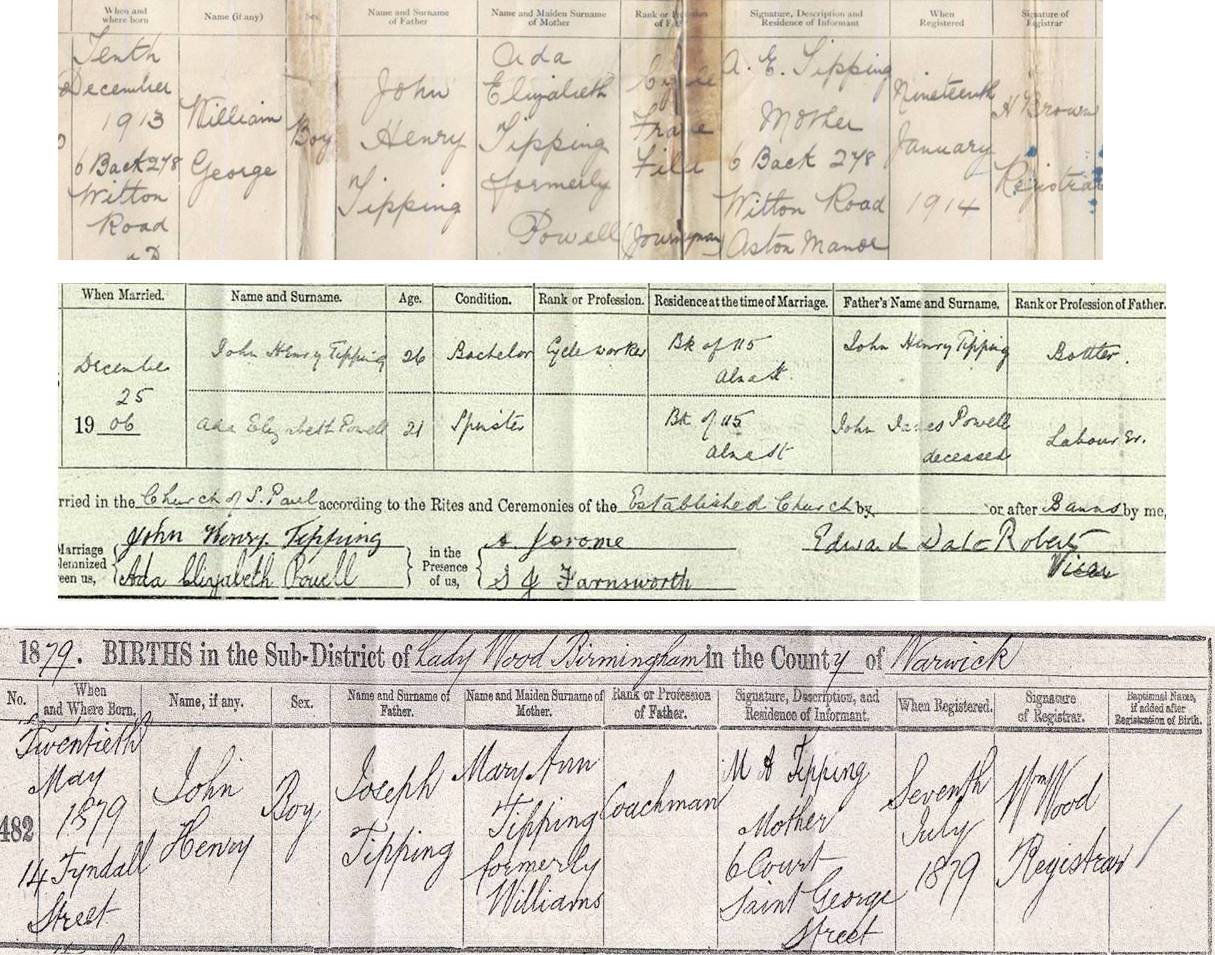 When and where born
Name (if any)
Sex
Name and Surname of Father
Name and Maiden Surname of Mother
Rank or Profession of Father
Signature, Description and Residence of Informant
When Registered
Signature of Registrar
Tenth
December
1913
6 Back 278
Witton
Road
William
George
Boy
John
Henry
Tipping
Ada
Elizabeth
Tipping
formerly
Powell
Cycle
Frame
File
(Journeyman)
A. E. Tipping
Mother
6 Back 278
Witton Road
Aston Manor
Nineteenth
January
1914
H Brown
Registrar
When Married.
Name and Surname.
Age.
Condition.
Rank or Profession.
Residence at the time of Marriage.
Father's Name and Surname.
Rank or Profession of Father.
December
25
1906
John Henry Tipping
26
Bachelor
Cycle worker
Bk of 115
Alma St.
John Henry Tipping
Bottler.
Ada Elizabeth Powell
21
Spinster
Bk of 115
Alma St
John James Powell
deceased
Labourer.
rried in the Church of S. Paul according to the Rites and Ceremonies of the Established Church by or after Banns by me,
Marriage
lemnized
een us,
John Henry Tipping
Ada Elizabeth Powell
in the
Presence
of us,
A Jerome
S J Farnsworth
Edward Dale Roberts
Vicar
1879. BIRTHS in the Sub-District of Lady Wood Birmingham in the County of Warwick
No.
When and Where Born,
Name, if any.
Sex.
Name and Surname of Father.
Name and Maiden Surname of Mother.
Rank or Profession of Father.
Signature, Description, and Residence of Informant.
When Registered.
Signature of Registrar.
Baptismal Name, if added after Registration of Birth.
482
Twentieth
May
1879
14 Tyndall
Street
John
Henry
Boy
Joseph
Tipping
Mary Ann
Tipping
formerly
Williams
Coachman
M A Tipping
Mother
6 Court
Saint George
Street
Seventh
July
1879
Wm Wood
Registrar